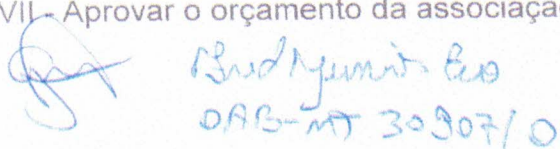 VII - Aprovar o orçamento da associaçã
OAB-MT 30907/O